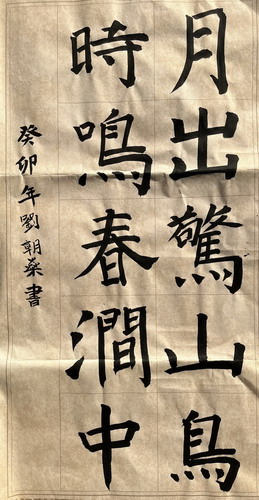 月出驚山鳥
時鳴春澗中
癸卯年劉朝燊書